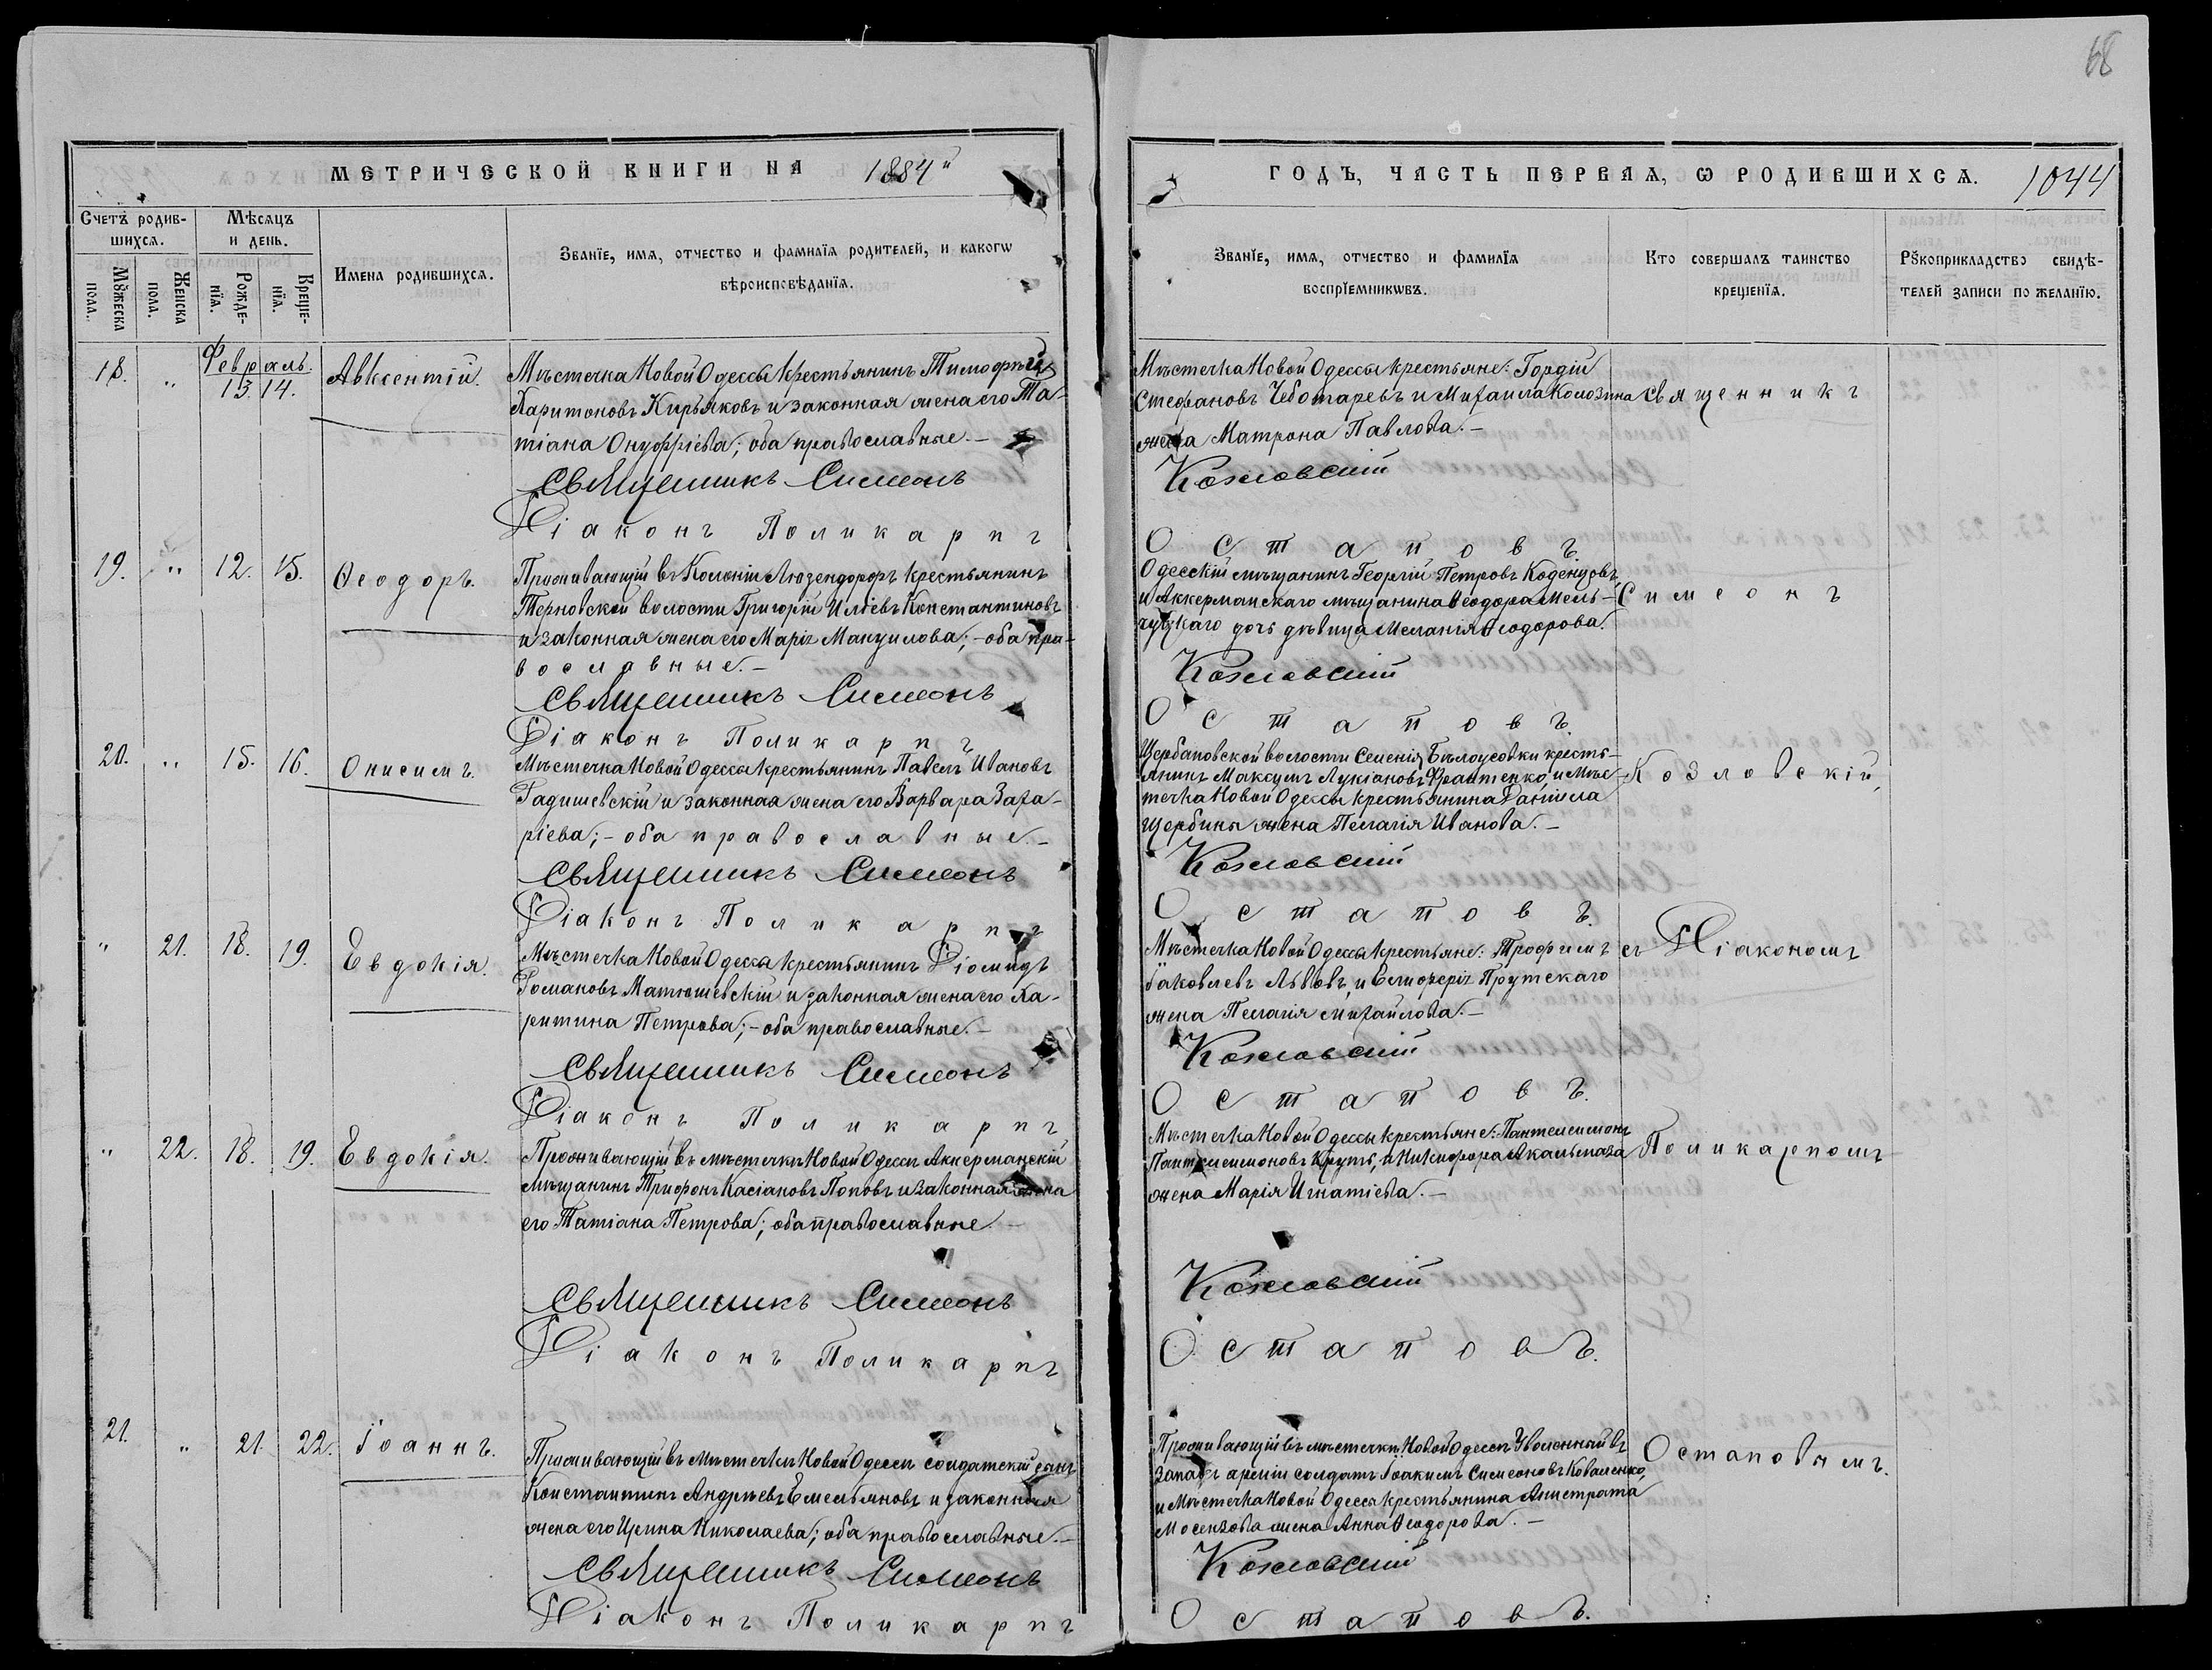 68
МЕТРИЧЕСКОЙ КНИГИ НА 1884й
ГОДЪ, ЧАСТЬ ПЕРВАЯ, Ѡ РОДИВШИХСЯ. 1044
Счетъ родив-
шихся.
Мѣсяцъ
и день.
Имена родившихся.
Званїе, имя, отчество и фамилїя родителей, и какогѡ
вѣроисповѣданїя.
Мꙋжеска
пола.
Женска
пола.
Рожде-
нїя.
Креще-
нїя.
Званїе, имя, отчество и фамилїя
воспрїемникѡвъ.
Кто совершалъ таинство
крещенїя.
Рꙋкоприкладство свидѣ-
телей записи по желанїю.
Февраль.
18. „ 13. 14. Авксентій.
Мѣстечка Новой Одессы крестьянинъ Тимофѣй
Харитоновъ Кирьяковъ и законная жена его Та-
тіана Онуфріева; оба православные.-
Священникъ Симеонъ
Діаконъ Поликарпъ
Мѣстечка Новой Одессы крестьяне: Гордій
Стефановъ Чеботаревъ и Михаила Колозина
жена Матрона Павлова.-
Козловскій
Остаповъ.
Священникъ
19. „ 12. 15. Ѳеодоръ.
Проживающій въ Колоніи Люзендорфъ крестьянинъ
Терновской волости Григорій Иліевъ Константиновъ
и законная жена его Марія Мануилова;-оба пра-
вославные.-
Священникъ Симеонъ
Діаконъ Поликарпъ
Одесскій мѣщанинъ Георгій Петровъ Коденцовъ,
и Аккерманскаго мѣщанина Ѳеодора Мель-
чуцкаго дочь дѣвица Меланія Ѳеодорова.
Козловскій
Остаповъ.
Симеонъ
20. „ 15. 16. Онисимъ.
Мѣстечка Новой Одессы крестьянинъ Павелъ Ивановъ
Гадишевскій и законная жена его Варвара Заха-
ріева;-оба православные.-
Священникъ Симеонъ
Діаконъ Поликарпъ
Щербановской волости Селенія Бѣлоусовки кресть-
янинъ Максимъ Лукіановъ Франтенко, и Мѣс-
течка Новой Одессы крестьянина Даніила
Щербины жена Пелагія Иванова.-
Козловскій
Остаповъ.
Козловскій,
„ 21. 18. 19. Евдокія.
Мѣстечка Новой Одессы крестьянинъ Діомидъ
Романовъ Матюшевскій и законная жена его Ха-
ритина Петрова;-оба православные.-
Священникъ Симеонъ
Діаконъ Поликарпъ
Мѣстечка Новой Одессы крестьяне: Трофимъ
Іаковлевъ Львовъ, и Елиоферія Прутскаго
жена Пелагія Михайлова.-
Козловскій
Остаповъ.
съ Діакономъ
„ 22. 18. 19. Евдокія.
Проживающій въ мѣстечкѣ Новой Одессѣ Аккерманскій
мѣщанинъ Трифонъ Касіановъ Поповъ и законная жена
его Татіана Петрова; оба православные.-
Священникъ Симеонъ
Діаконъ Поликарпъ
Мѣстечка Новой Одессы крестьяне: Пантелеимонъ
Пантелеимоновъ Круть, и Никифора Акальмаза
жена Марія Игнатіева.-
Козловскій
Остаповъ.
Поликарпомъ
21. „ 21. 22. Іоаннъ.
Проживающій въ Мѣстечкѣ Новой Одессѣ солдатскій сынъ
Константинъ Андреевъ Емельяновъ и законная
жена его Ирина Николаева; оба православные.-
Священникъ Симеонъ
Діаконъ Поликарпъ
Проживающій въ мѣстечкѣ Новой Одессѣ Уволенный въ
запасъ арміи солдатъ Іоакимъ Симеоновъ Коваленко,
и Мѣстечка Новой Одессы крестьянина Анистрата
Мосенкова жена Анна Ѳеодорова.-
Козловскій
Остаповъ.
Остаповымъ.